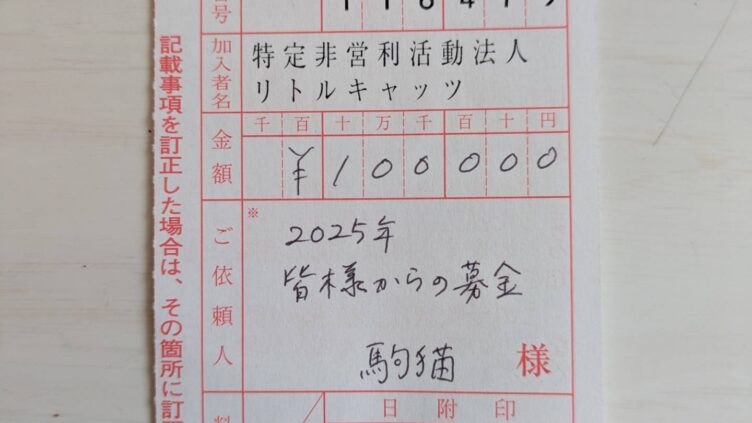 号
加入者名
特定非営利活動法人
リトルキャッツ
金額
千 百 十 万 千 百 十 円
¥ 1 0 0 0 0 0
ご依頼人
※
2025年
皆様からの募金
駒猫 様
日附印
記載事項を訂正した場合は、その箇所に訂